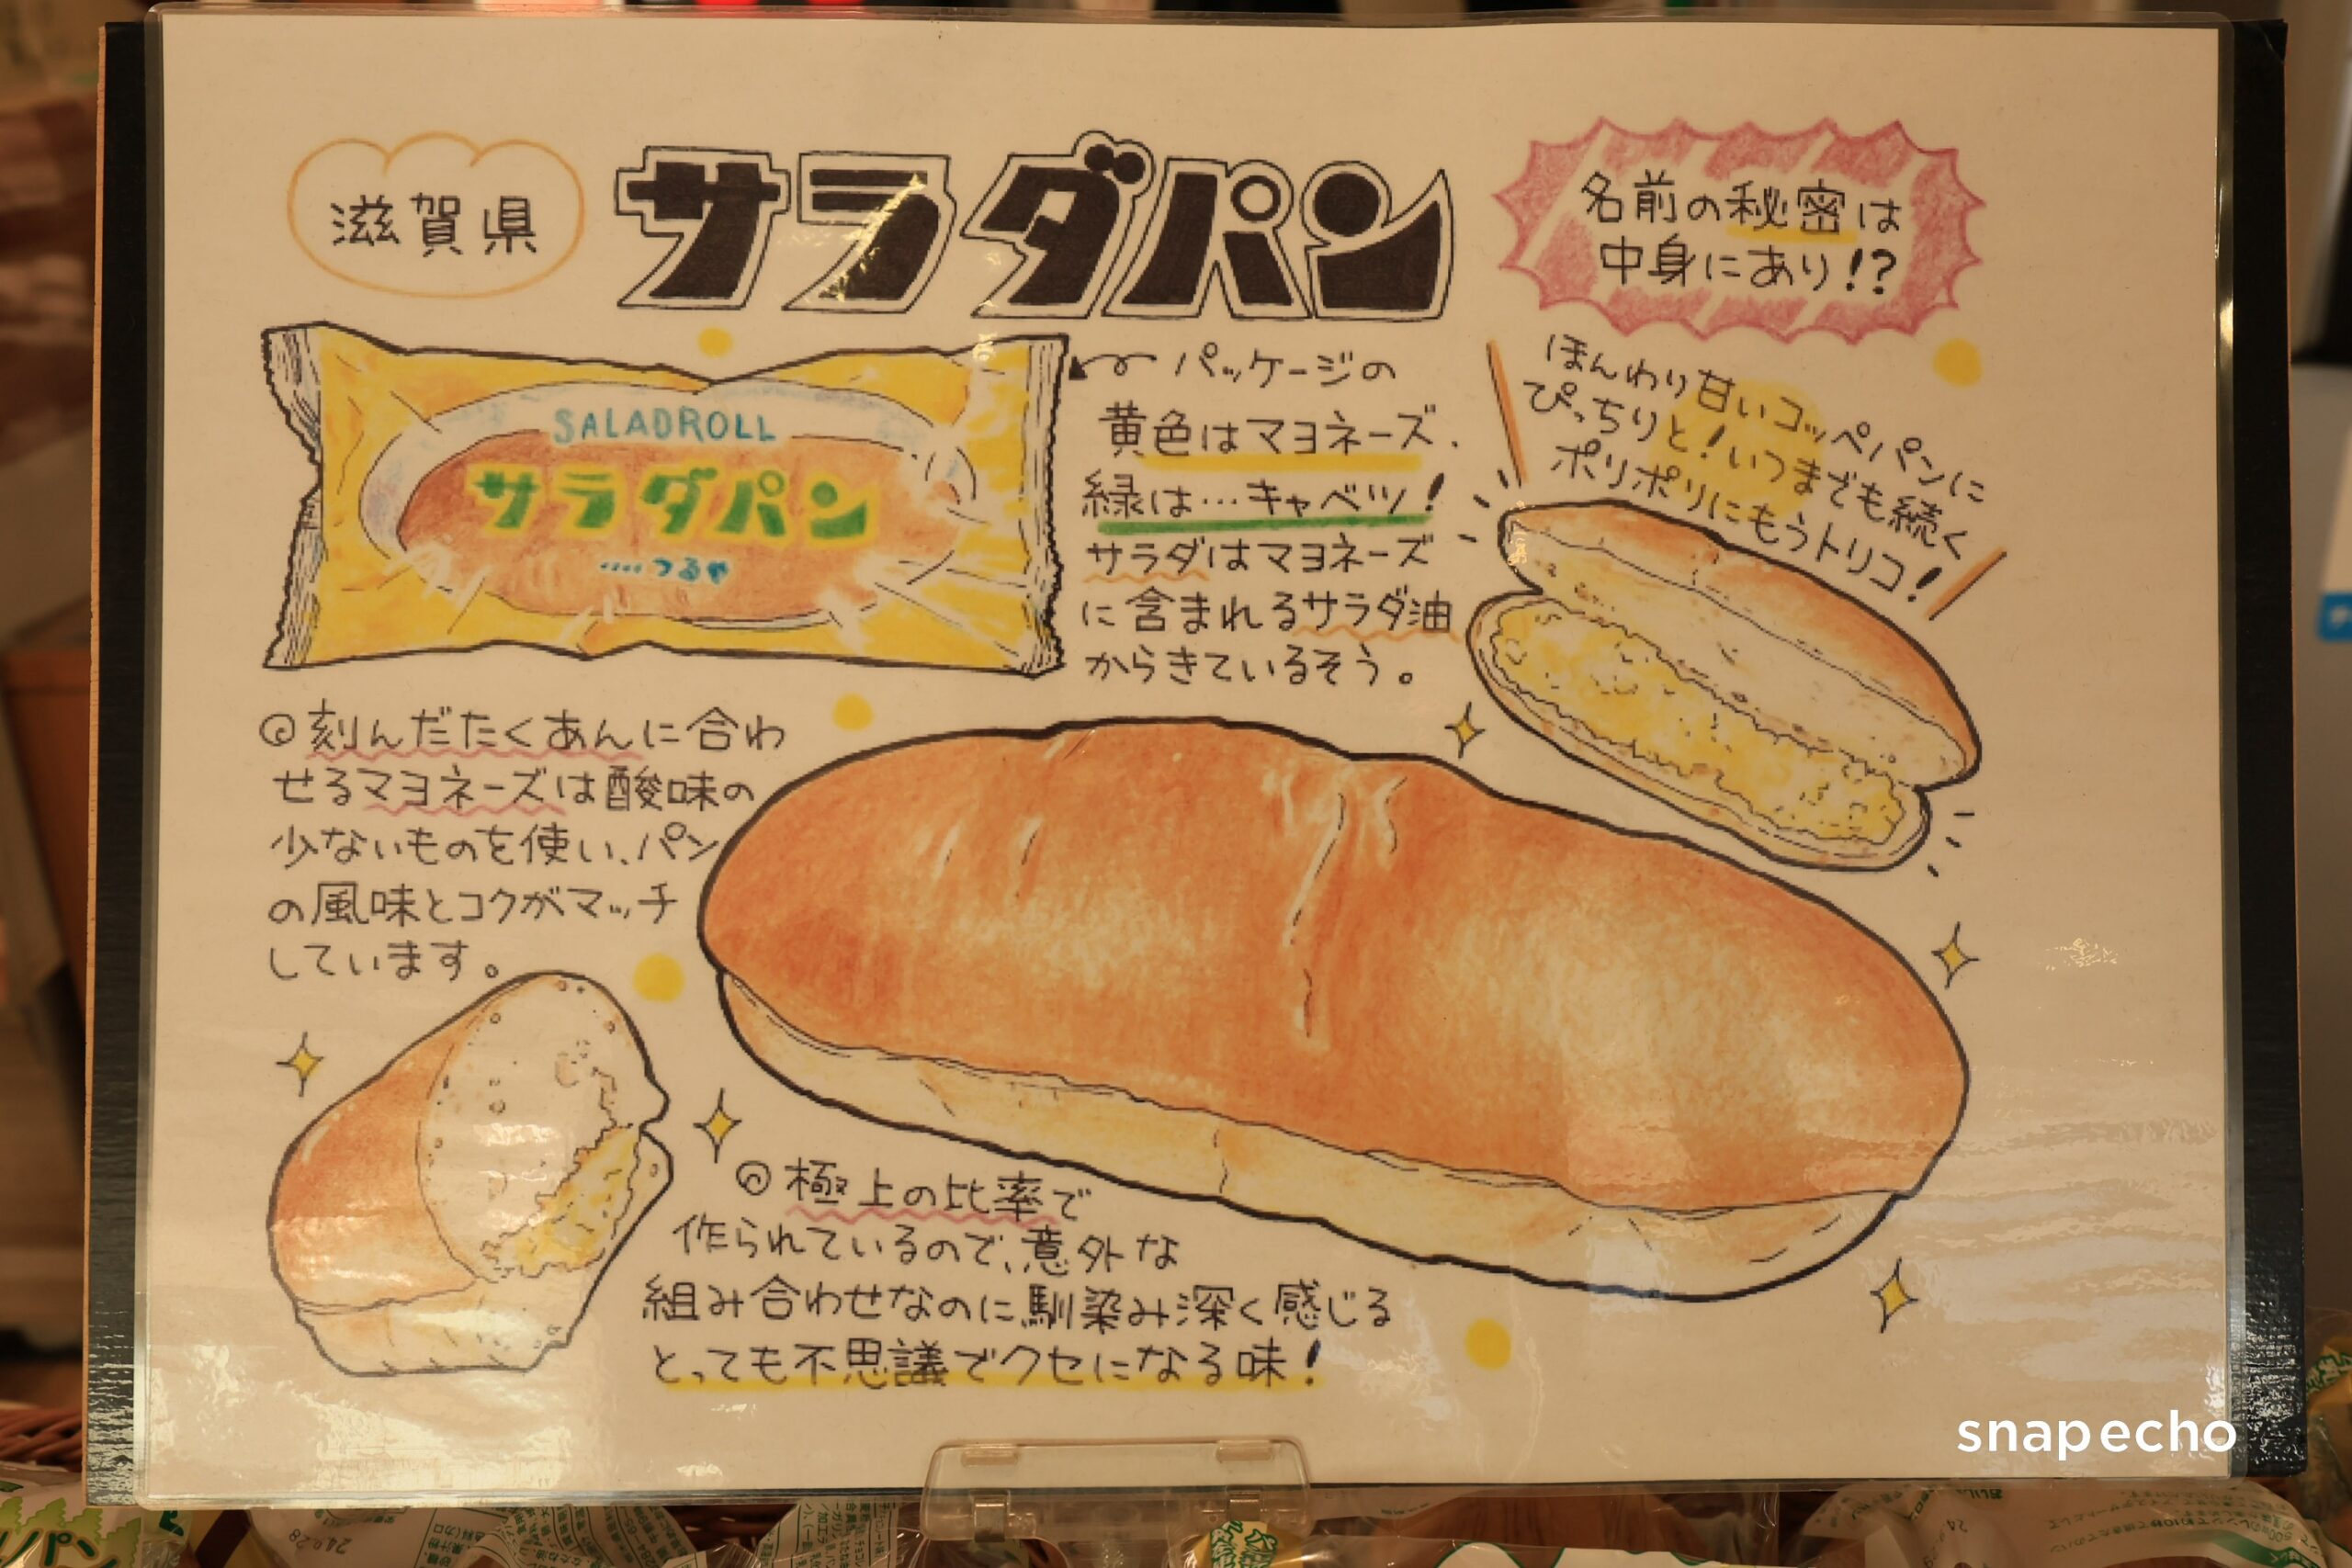 滋賀県
サラダパン
名前の秘密は
中身にあり!?
SALADROLL
サラダパン
....つるや
パッケージの
黄色はマヨネーズ、
緑は…キャベツ!
サラダはマヨネーズ
に含まれるサラダ油
からきているそう。
ほんわり甘いコッペパンに
ぴっちりと!いつまでも続く
ポリポリにもうトリコ!
◎刻んだたくあんに合わ
せるマヨネーズは酸味の
少ないものを使い、パン
の風味とコクがマッチ
しています。
◎極上の比率で
作られているので、意外な
組み合わせなのに馴染み深く感じる
とっても不思議でクセになる味!
snapecho